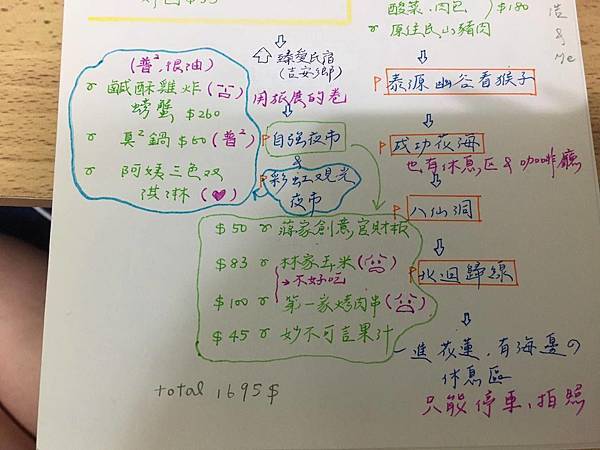 酸菜.肉包 $180
原住民山豬肉
浩 & Me
臻愛民宿
(吉安鄉)
用旅展的卷
(普², 很油)
鹹酥雞炸
螃蟹 $260
臭²鍋 $60 (普²)
阿姨三色双
淇淋 (♥)
自強夜市
&
彩虹观光
夜市
$50 蔣家創意官財板
$83 林家玉米
→不好吃
$100 第一家烤肉串
$45 妙不可言果汁
泰源幽谷看猴子
成功花海
也有休息区 & 咖啡廳
八仙洞
北迴歸線
一進花蓮.有海邊の
休息區
只能停車、拍照
total 1695$